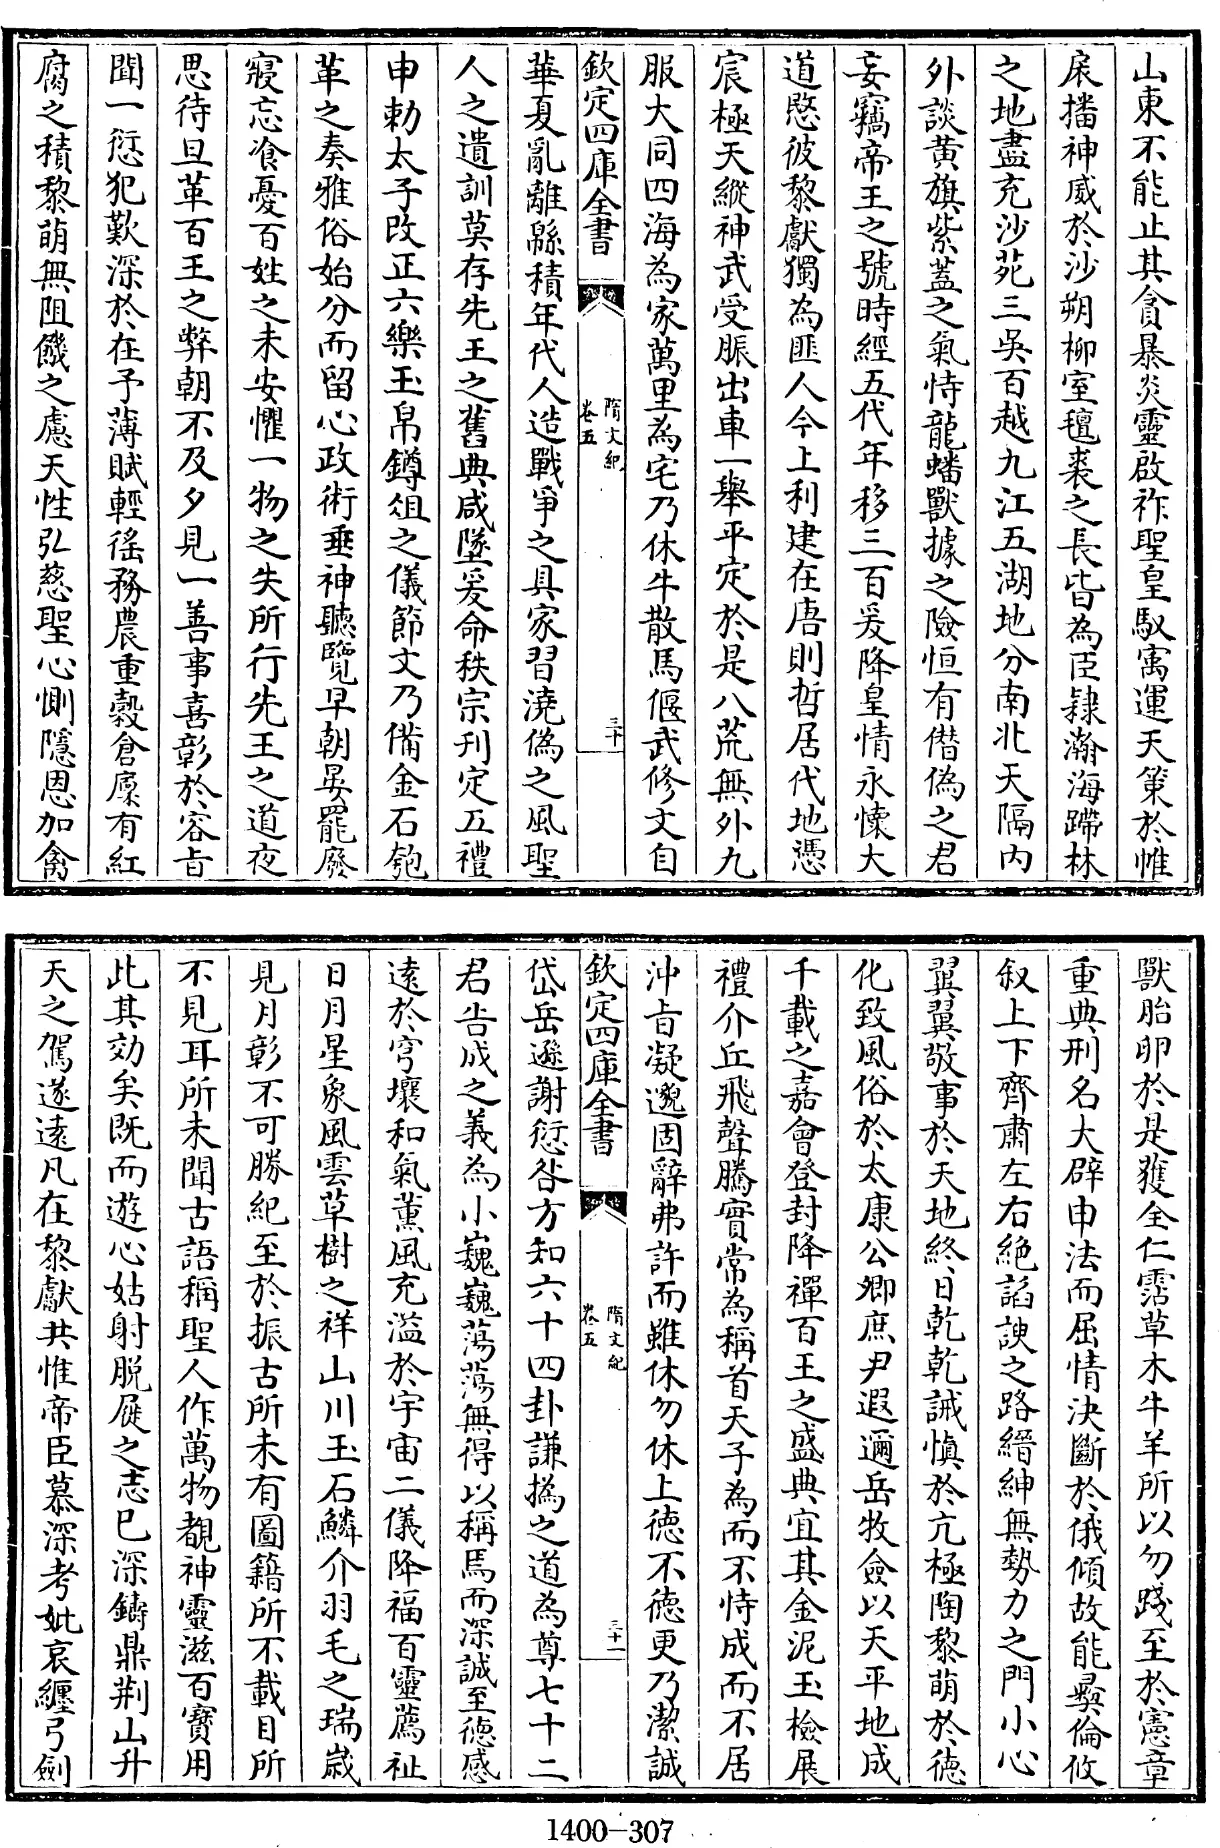 山東不能止其貪暴炎靈啟祚聖皇馭寓運天策於帷
扆播神威於沙朔柳室氊裘之長皆為臣隸瀚海蹛林
之地盡充沙苑三吳百越九江五湖地分南北天隔内
外談黄旗紫蓋之氣恃龍蟠獸據之險恒有僭偽之君
妄竊帝王之號時經五代年移三百爰降皇情永懐大
道愍彼黎獻獨為匪人今上利建在唐則哲居代地憑
宸極天縱神武受脤出車一舉平定於是八荒無外九
服大同四海為家萬里為宅乃休牛散馬偃武修文自
欽定四庫全書
隋文紀
卷五
三十
華夏亂離緜積年代人造戰爭之具家習澆偽之風聖
人之遺訓莫存先王之舊典咸墜爰命秩宗刋定五禮
申勅太子改正六樂玉帛鐏俎之儀節文乃備金石匏
革之奏雅俗始分而留心政術垂神聽覽早朝晏罷廢
寢忘飡憂百姓之未安懼一物之失所行先王之道夜
思待旦革百王之弊朝不及夕見一善事喜彰於容旨
聞一愆犯歎深於在予薄賦輕徭務農重穀倉廪有紅
腐之積黎萌無阻饑之慮天性弘慈聖心惻隱恩加禽
獸胎卵於是獲全仁霑草木牛羊所以勿踐至於憲章
重典刑名大辟申法而屈情決斷於俄傾故能彛倫攸
叙上下齊肅左右絶諂諛之路縉紳無勢力之門小心
翼翼敬事於天地終日乾乾誡慎於亢極陶黎萌於徳
化致風俗於太康公卿庶尹遐邇岳牧僉以天平地成
千載之嘉會登封降禪百王之盛典宜其金泥玉檢展
禮介丘飛聲騰實常為稱首天子為而不恃成而不居
沖旨凝邈固辭弗許而雖休勿休上徳不徳更乃潔誠
欽定四庫全書
隋文紀
卷五
三十一
岱岳遜謝愆咎方知六十四卦謙撝之道為尊七十二
君告成之義為小巍巍蕩蕩無得以稱焉而深誠至徳感
逺於穹壤和氣薰風充溢於宇宙二儀降福百靈薦祉
日月星象風雲草樹之祥山川玉石鱗介羽毛之瑞嵗
見月彰不可勝紀至於振古所未有圖籍所不載目所
不見耳所未聞古語稱聖人作萬物覩神靈滋百寳用
此其効矣既而遊心姑射脱屣之志已深鑄鼎荆山升
天之駕遂逺凡在黎獻共惟帝臣慕深考妣哀纏弓劍
1400-307